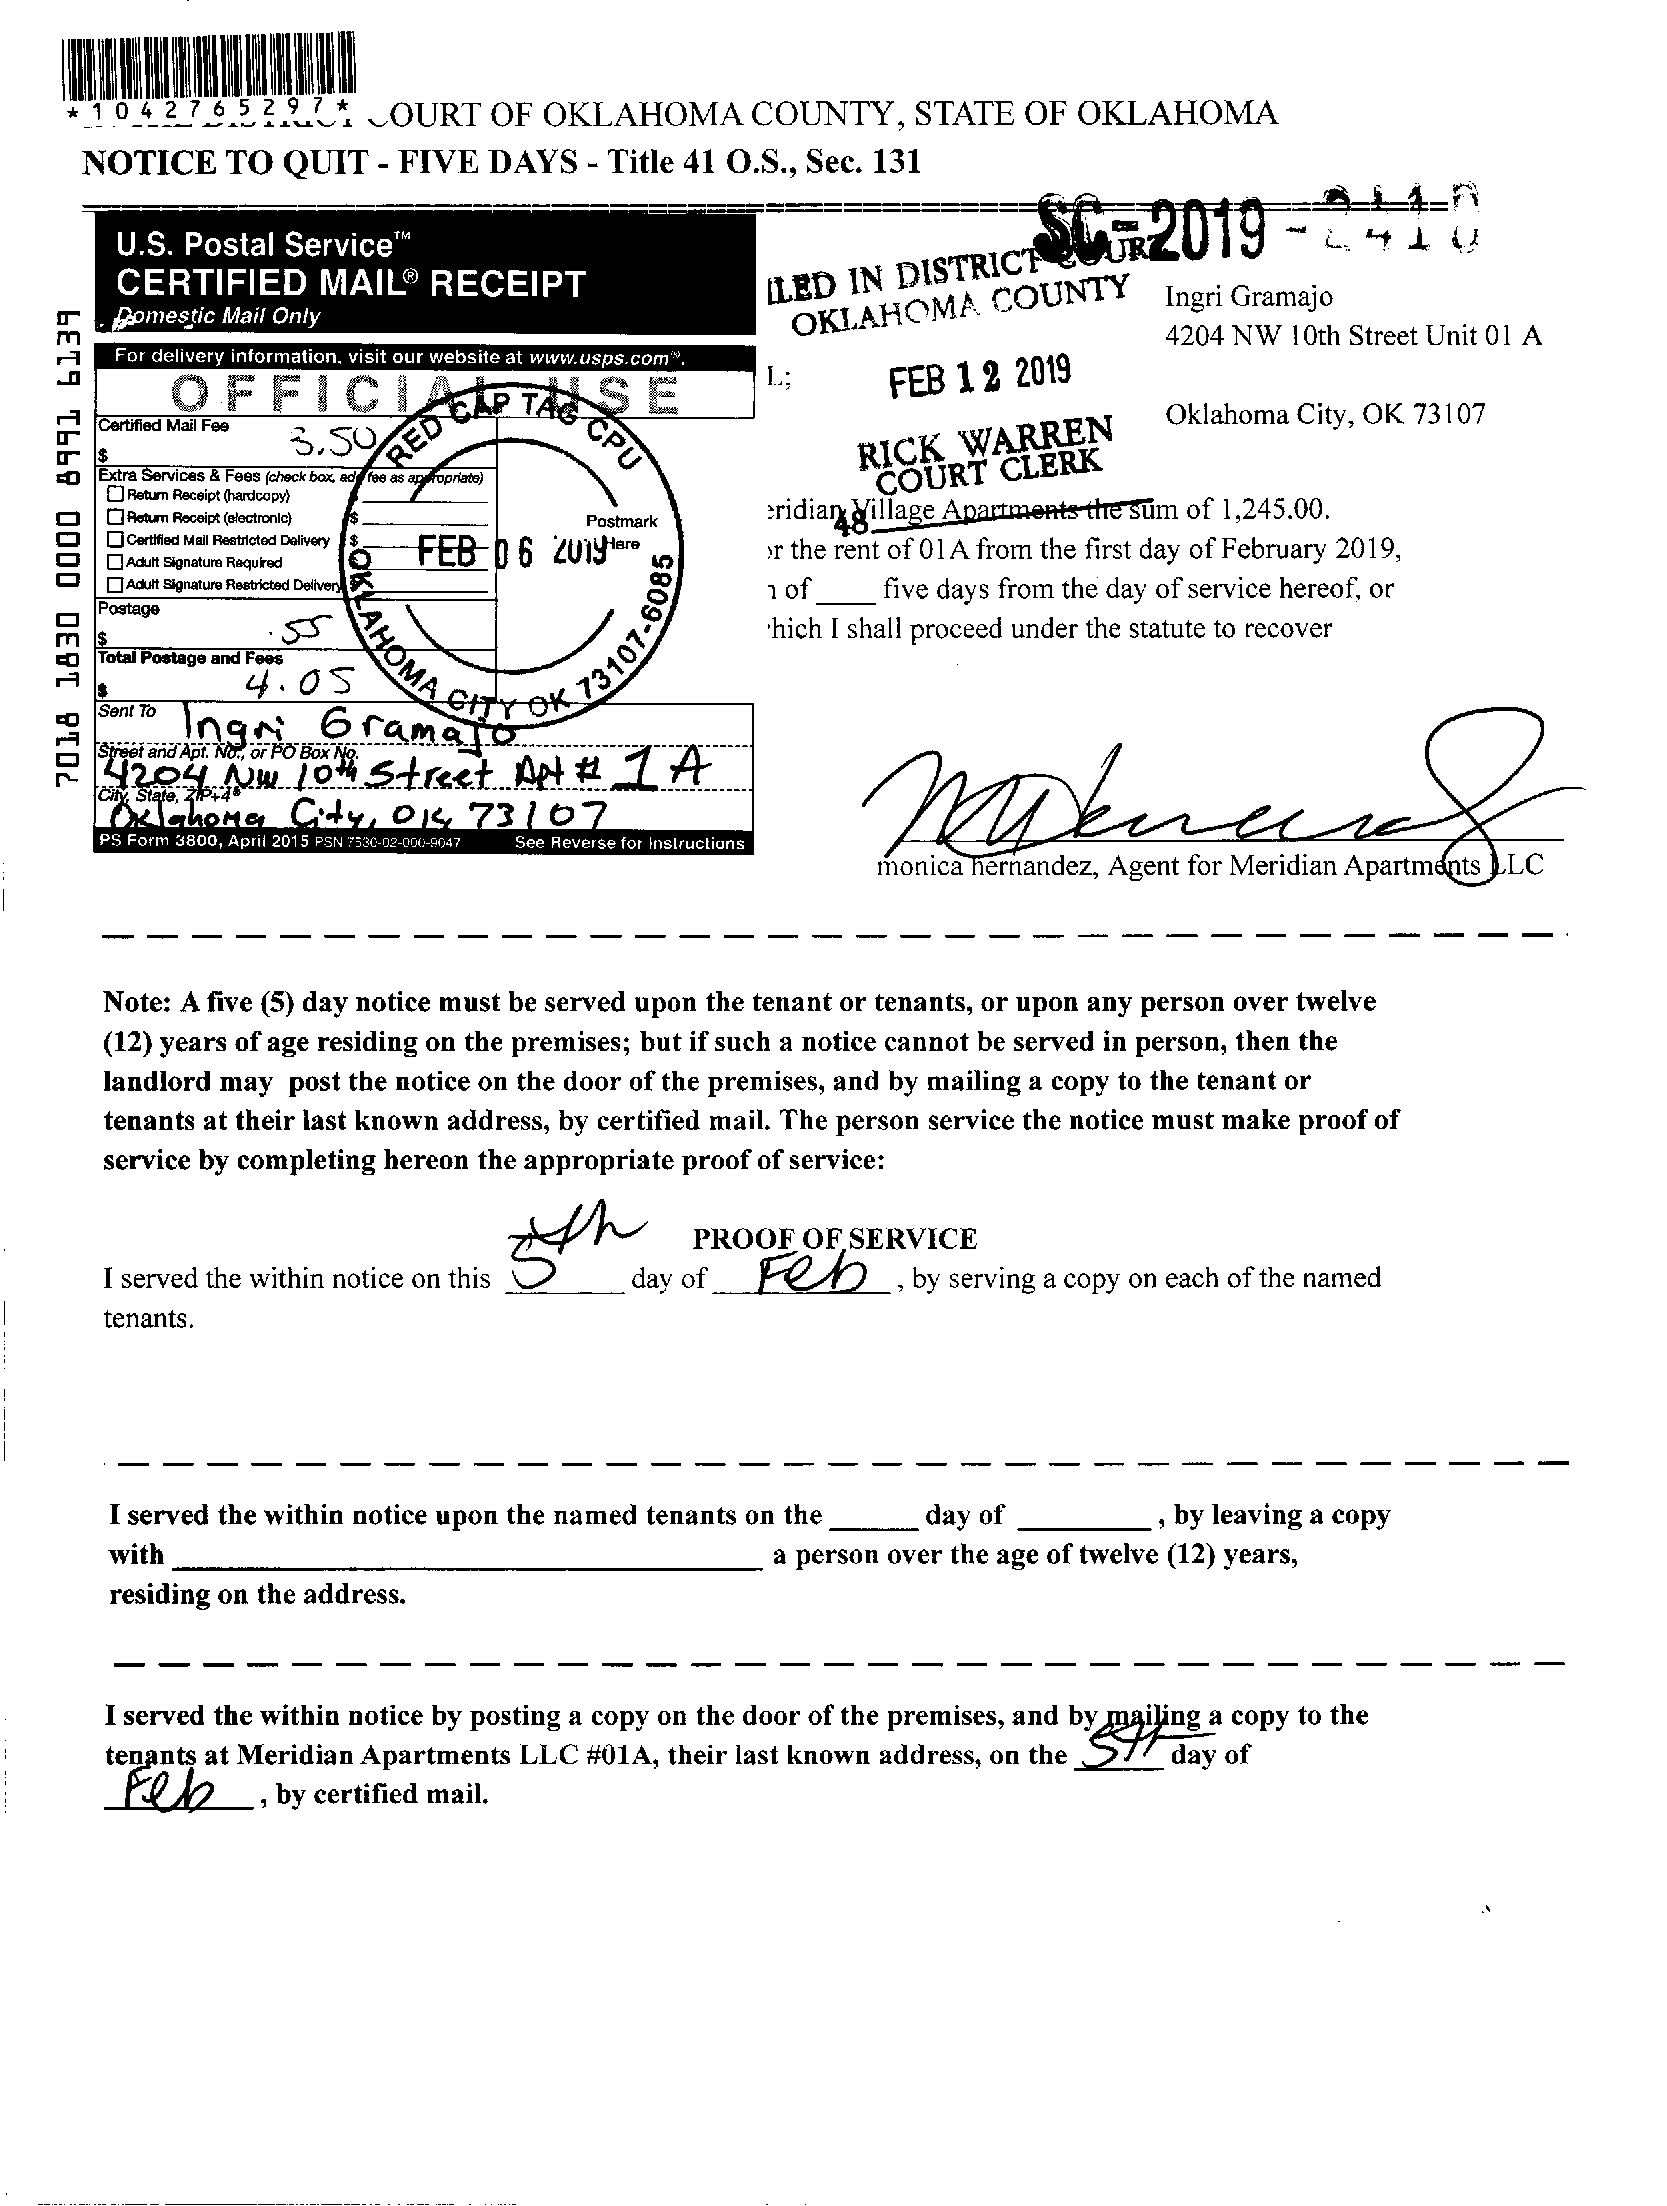 *1042765297*
COURT OF OKLAHOMA COUNTY, STATE OF OKLAHOMA
NOTICE TO QUIT - FIVE DAYS - Title 41 O.S., Sec. 131
SC-2019 -
U.S. Postal Service™
CERTIFIED MAIL® RECEIPT
Domestic Mail Only
For delivery information, visit our website at www.usps.com®.
OFFICIAL USE
Certified Mail Fee
$ 3.50
Extra Services & Fees (check box, add fee as appropriate)
Return Receipt (hardcopy)
Return Receipt (electronic) $
Certified Mail Restricted Delivery $
Adult Signature Required
Adult Signature Restricted Delivery $
Postmark
Here
RED CAP TAG CPU
FEB 06 2019
OKLAHOMA CITY OK 73107-6085
Postage
$ .55
Total Postage and Fees
$ 4.05
Sent To Ingri Gramajo
Street and Apt. No., or PO Box No.
4204 NW 10th Street Apt # 1 A
City, State, ZIP+4®
Oklahoma City, OK 73107
PS Form 3800, April 2015 PSN 7530-02-000-9047 See Reverse for Instructions
7018 1830 0000 8991 6139
ILED IN DISTRICT COUR
OKLAHOMA COUNTY
FEB 12 2019
RICK WARREN
COURT CLERK
48
Ingri Gramajo
4204 NW 10th Street Unit 01 A
L;
Oklahoma City, OK 73107
eridian Village Apartments the sum of 1,245.00.
or the rent of 01A from the first day of February 2019,
n of ____ five days from the day of service hereof, or
which I shall proceed under the statute to recover
monica hernandez, Agent for Meridian Apartments LLC
Note: A five (5) day notice must be served upon the tenant or tenants, or upon any person over twelve
(12) years of age residing on the premises; but if such a notice cannot be served in person, then the
landlord may post the notice on the door of the premises, and by mailing a copy to the tenant or
tenants at their last known address, by certified mail. The person service the notice must make proof of
service by completing hereon the appropriate proof of service:
PROOF OF SERVICE
I served the within notice on this 5th day of Feb, by serving a copy on each of the named
tenants.
I served the within notice upon the named tenants on the ______ day of _________, by leaving a copy
with ________________________________________ a person over the age of twelve (12) years,
residing on the address.
I served the within notice by posting a copy on the door of the premises, and by mailing a copy to the
tenants at Meridian Apartments LLC #01A, their last known address, on the 5th day of
Feb, by certified mail.